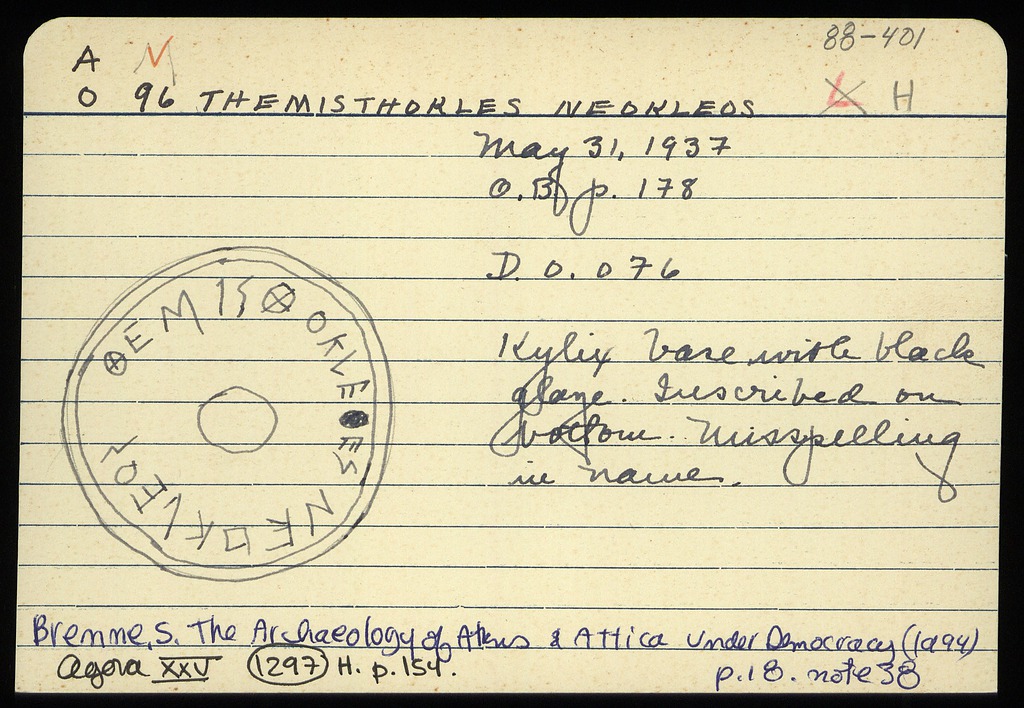 88-401
A M
O 96 THEMISTHOKLES NEOKLEOS L H
May 31, 1937
O.B. p. 178
D. 0.076
Kylix base with black
glaze. Inscribed on
bottom. Misspelling
in name.
Bremne, S. The Archaeology of Athens & Attica under Democracy (1994)
p.18. note 38
Agora XXV 1297 H. p. 154.